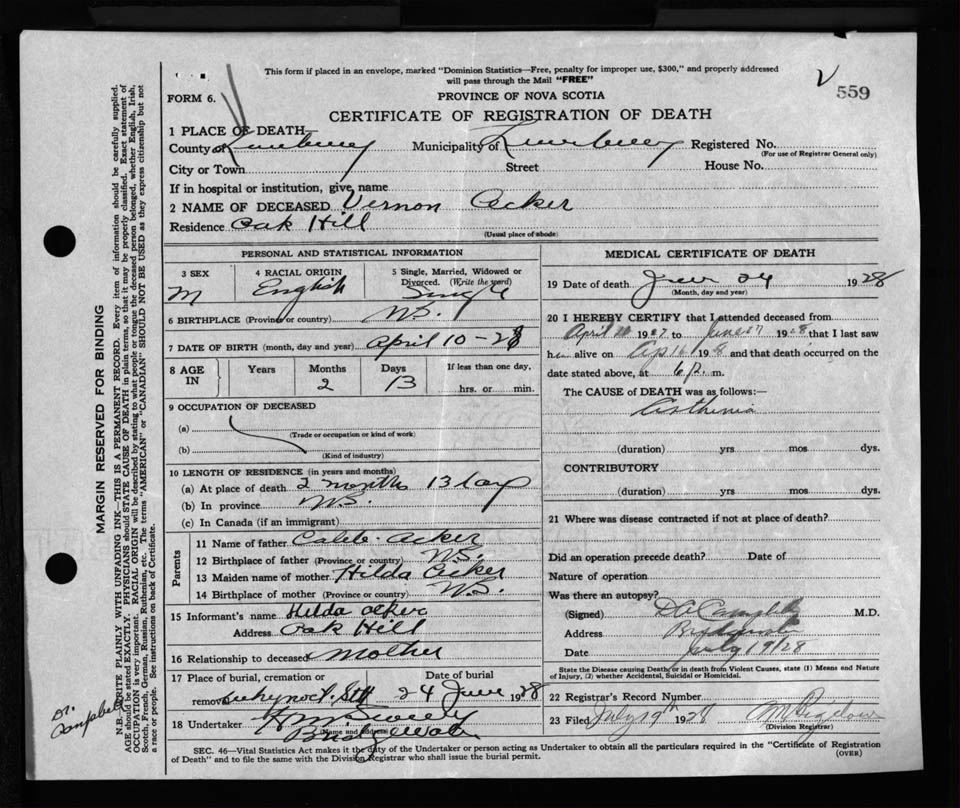 This form if placed in an envelope, marked "Dominion Statistics—Free, penalty for improper use, $300," and properly addressed
will pass through the Mail "FREE"
559
FORM 6.
PROVINCE OF NOVA SCOTIA
CERTIFICATE OF REGISTRATION OF DEATH
1 PLACE OF DEATH
County of Lunenburg Municipality of Lunenburg Registered No.
(For use of Registrar General only)
City or Town Street House No.
If in hospital or institution, give name
2 NAME OF DECEASED Vernon Acker
Residence Oak Hill
(Usual place of abode)
PERSONAL AND STATISTICAL INFORMATION
3 SEX
M
4 RACIAL ORIGIN
English
5 Single, Married, Widowed or
Divorced. (Write the word)
Single
6 BIRTHPLACE (Province or country) N.S.
7 DATE OF BIRTH (month, day and year) April 10-28
8 AGE IN
Years Months Days If less than one day,
2 13 hrs. or min.
9 OCCUPATION OF DECEASED
(a)
(Trade or occupation or kind of work)
(b)
(Kind of industry)
10 LENGTH OF RESIDENCE (in years and months)
(a) At place of death 2 months 13 days
(b) In province N.S.
(c) In Canada (if an immigrant)
Parents
11 Name of father Caleb Acker
12 Birthplace of father (Province or country) N.S.
13 Maiden name of mother Hilda Acker
14 Birthplace of mother (Province or country) N.S.
15 Informant's name Hilda Acker
Address Oak Hill
16 Relationship to deceased Mother
17 Place of burial, cremation or Date of burial
removal 24 June 1928
18 Undertaker
Name and address
Bridgewater
MEDICAL CERTIFICATE OF DEATH
19 Date of death June 24 1928
(Month, day and year)
20 I HEREBY CERTIFY that I attended deceased from
April 19 to 19 that I last saw
alive on 19 and that death occurred on the
date stated above, at 6 p. m.
The CAUSE of DEATH was as follows:—
Asthenia
(duration) yrs mos. dys.
CONTRIBUTORY
(duration) yrs. mos. dys.
21 Where was disease contracted if not at place of death?
Did an operation precede death? Date of
Nature of operation
Was there an autopsy?
(Signed) D A Campbell M.D.
Address Bridgewater
Date July 19/28
State the Disease causing Death, or in death from Violent Causes, state (1) Means and Nature
of Injury, (2) whether Accidental, Suicidal or Homicidal.
22 Registrar's Record Number
23 Filed July 19th 1928
(Division Registrar)
SEC. 46—Vital Statistics Act makes it the duty of the Undertaker or person acting as Undertaker to obtain all the particulars required in the "Certificate of Registration
of Death" and to file the same with the Division Registrar who shall issue the burial permit.
(OVER)
MARGIN RESERVED FOR BINDING
N.B.—WRITE PLAINLY WITH UNFADING INK—THIS IS A PERMANENT RECORD. Every item of information should be carefully supplied.
AGE should be stated EXACTLY. PHYSICIANS should STATE CAUSE OF DEATH in plain terms, so that it may be properly classified. Exact statement of
OCCUPATION is very important. RACIAL ORIGIN will be described by stating to what people or tongue the deceased person belonged, whether English, Irish,
Scotch, French, German, Russian, Ruthenian, etc. The terms "AMERICAN" or "CANADIAN" SHOULD NOT BE USED as they express citizenship but not
a race or people. See instructions on back of Certificate.
Dr. Campbell